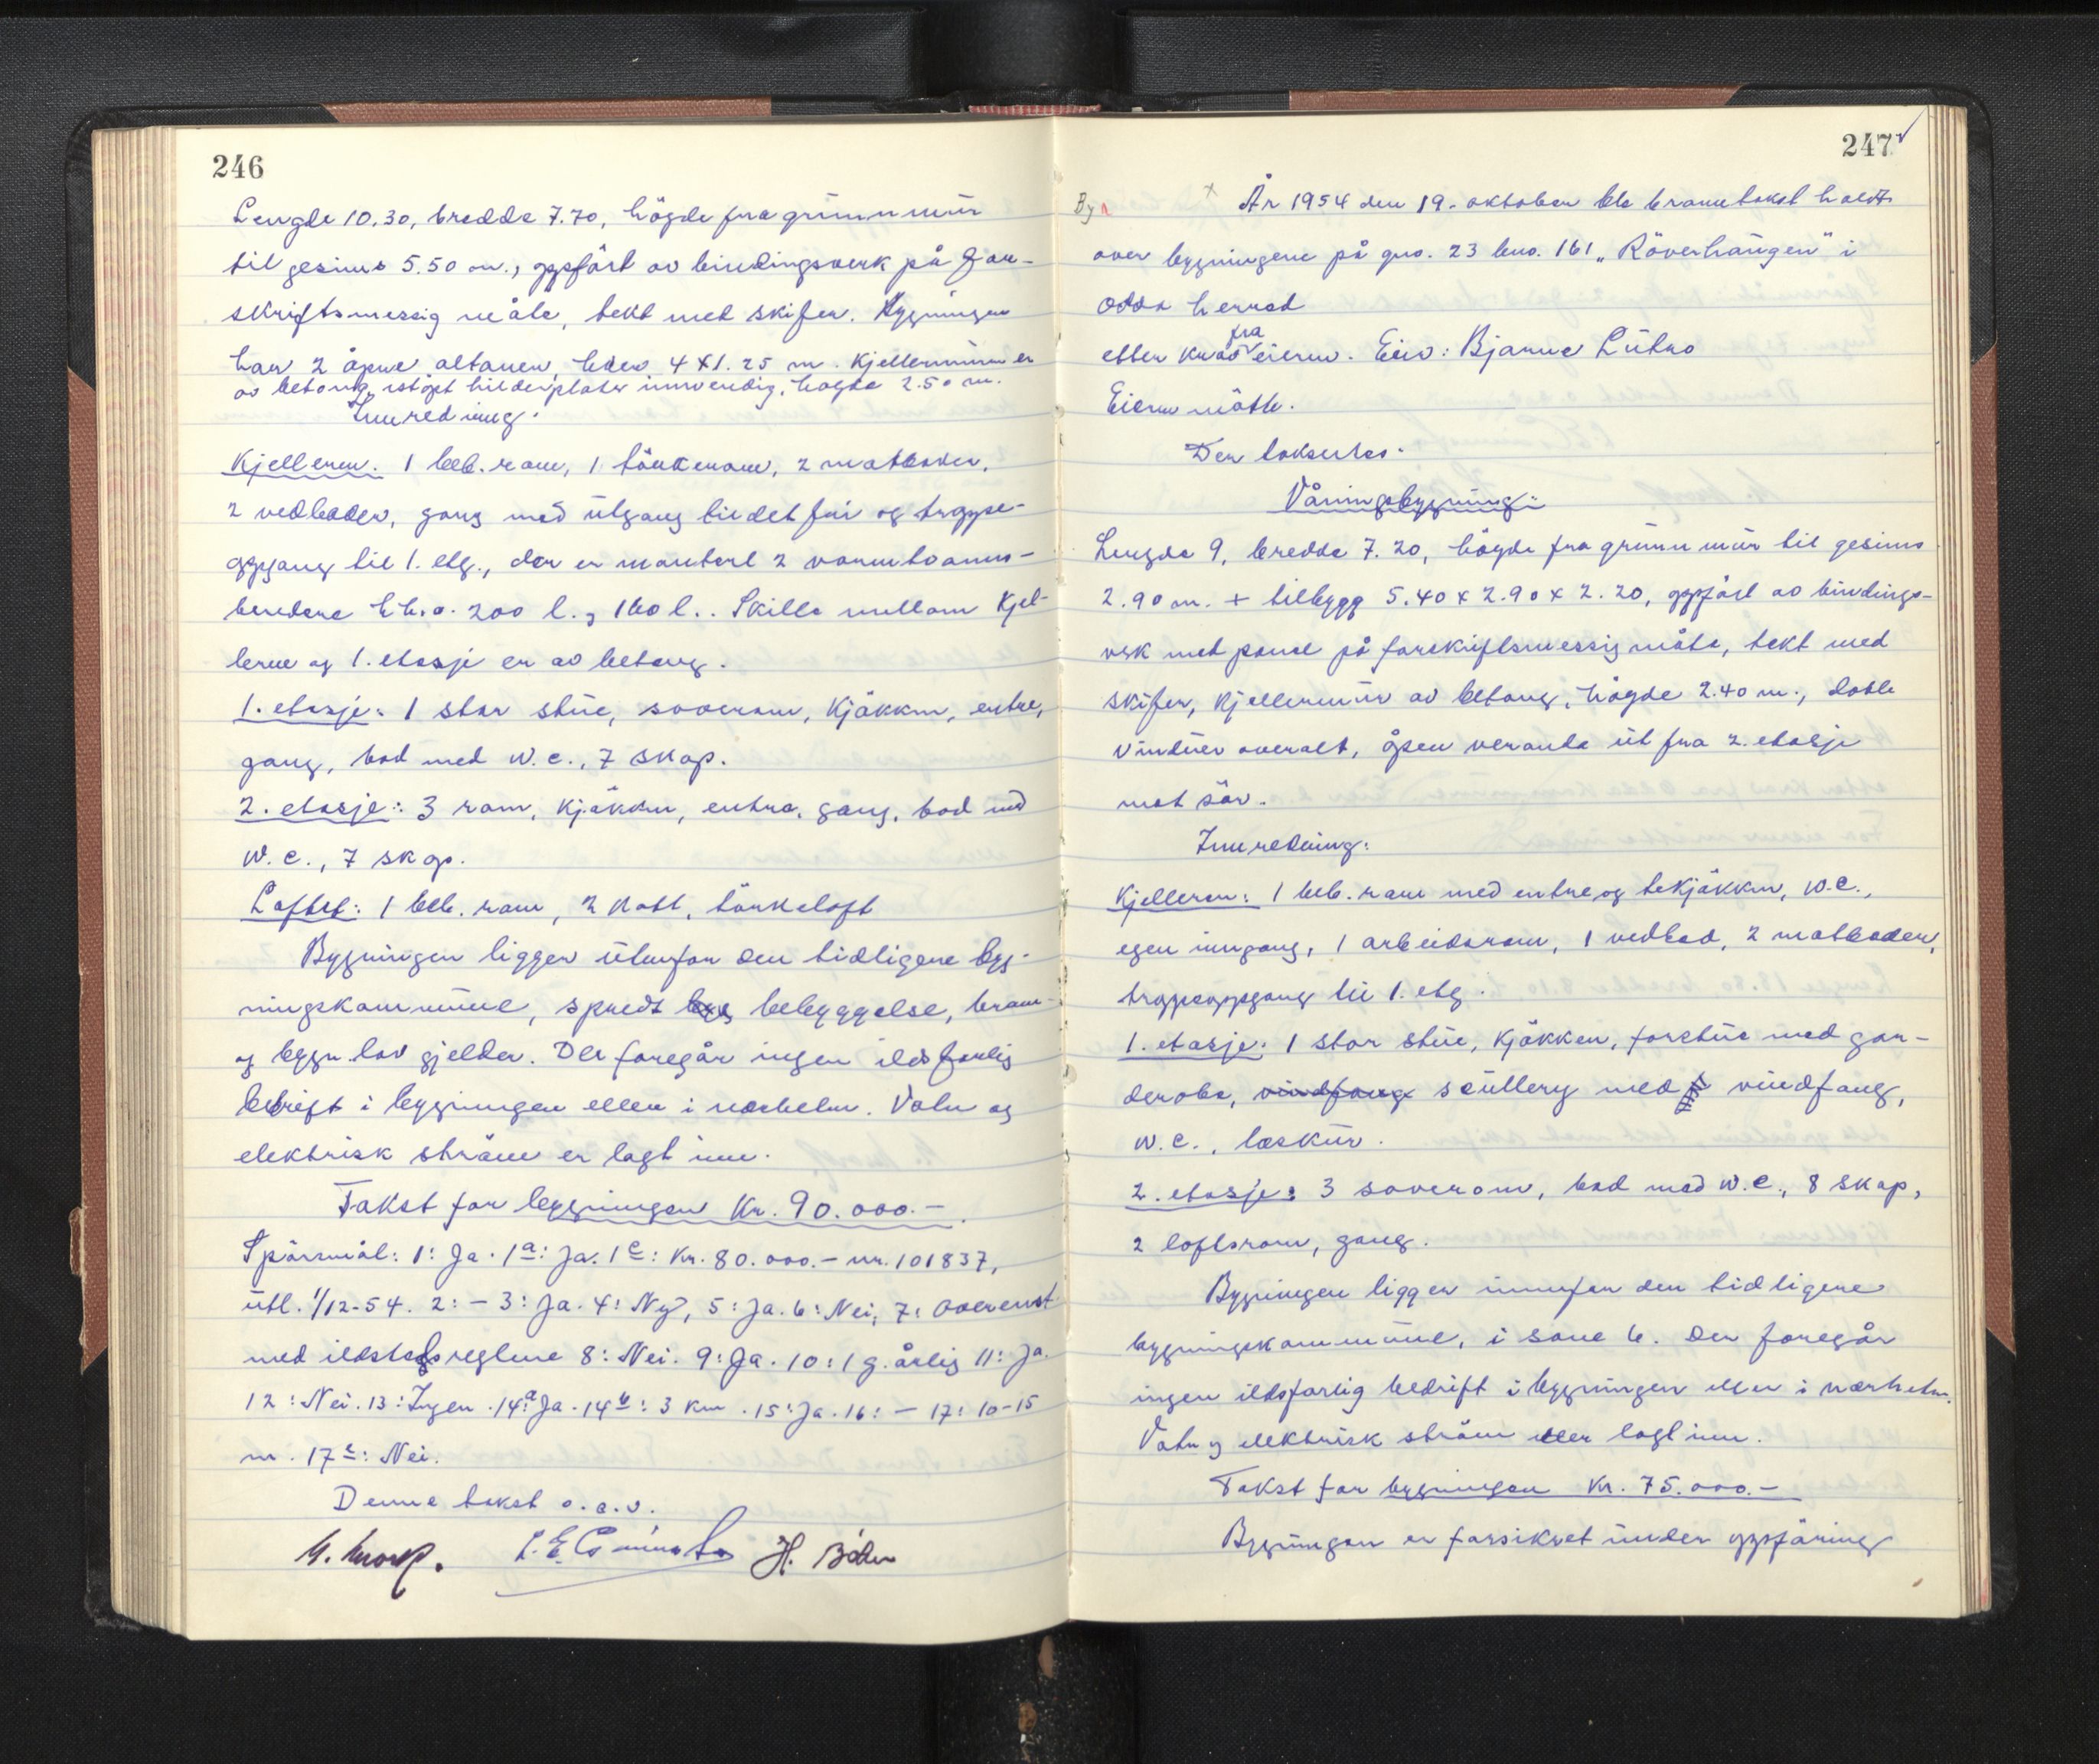 246
Lengde 10.30, bredde 7.70, högde fra grunnmur
til gesims 5.50 m., oppfört av bindingsverk på for-
skriftsmessig måte, tekt med skifer. Bygningen
har 2 åpne altaner, hver 4 x 1.25 m. Kjellermuren er
av betong, istöpt bilderplater innvendig, högde 2.50 m.
Innredning:
Kjelleren. 1 beb. rom, 1 törkerom, 2 matboder,
2 vedboder, gang med utgang til det fri og trappe-
oppgang til 1. etg., der er montert 2 varmtvanns-
beredere h.h.v. 200 l. , 160 l.. Skille mellom kjel-
leren og 1. etasje er av betong.
1. etasje: 1 stor stue, soverom, kjökken, entre,
gang, bad med w.c., 7 skap.
2. etasje: 3 rom, kjökken, entre, gang, bad med
w.c., 7 skap.
Loftet: 1 beb. rom, 2 kott, törkeloft
Bygningen ligger utenfor den tidligere byg-
ningskommune, spredt byg bebyggelse, brann-
og bygn. lov gjelder. Det foregår ingen ildsfarlig
bedrift i bygningen eller i nærheten. Vatn og
elektrisk ström er lagt inn.
Takst for bygningen Kr. 90.000.-
Spörsmål: 1: Ja. 1a: Ja. 1c: Kr. 80.000.- nr. 101837,
utl. 1/12-54. 2: - 3: Ja. 4: Ny, 5: Ja. 6: Nei, 7: Overenst
med ildstedsreglene 8: Nei. 9: Ja. 10: 1 g. årlig 11: Ja.
12: Nei. 13: Ingen. 14a: Ja. 14b: 3 km. 15: Ja. 16: - 17: 10-15
m. 17c: Nei.
Denne takst o.a.v.
H.
247
Byn
x År 1954 den 19. oktober ble branntakst holdt
over bygningene på gno. 23 bno. 161 „Röverhaugen" i
Odda herred
etter krav fra eieren. Eier: Bjarne Lutro
Eieren mötte.
Der takseres:
Våningsbygning:
Lengde 9, bredde 7.20, högde fra grunnmur til gesims
2.90 m. + tilbygg 5.40 x 2.90 x 2.20, oppfört av bindings-
verk med panel på forskriftsmessig måte, tekt med
skifer, kjellermur av betong, högde 2.40 m., doble
vinduer overalt, åpen veranda ut fra 2. etasje
mot sör.
Innredning:
Kjelleren: 1 beb. rom med entre og tekjökken, w.c.,
egen inngang, 1 arbeidsrom, 1 vedbod, 2 matboder,
trappeoppgang til 1. etg.
1. etasje: 1 stor stue, kjökken, forstue med gar-
derobe, vindfang scullery med vindfang,
w.c., læskur.
2. etasje: 3 soverom, bad med w.c., 8 skap,
2 loftsrom, gang.
Bygningen ligger innenfor den tidligere
bygningskommune, i sone 6. Der foregår
ingen ildsfarlig bedrift i bygningen eller i nærheten.
Vatn og elektrisk ström er lagt inn.
Takst for bygningen Kr. 75.000.-
Bygningen er forsikret under oppföring